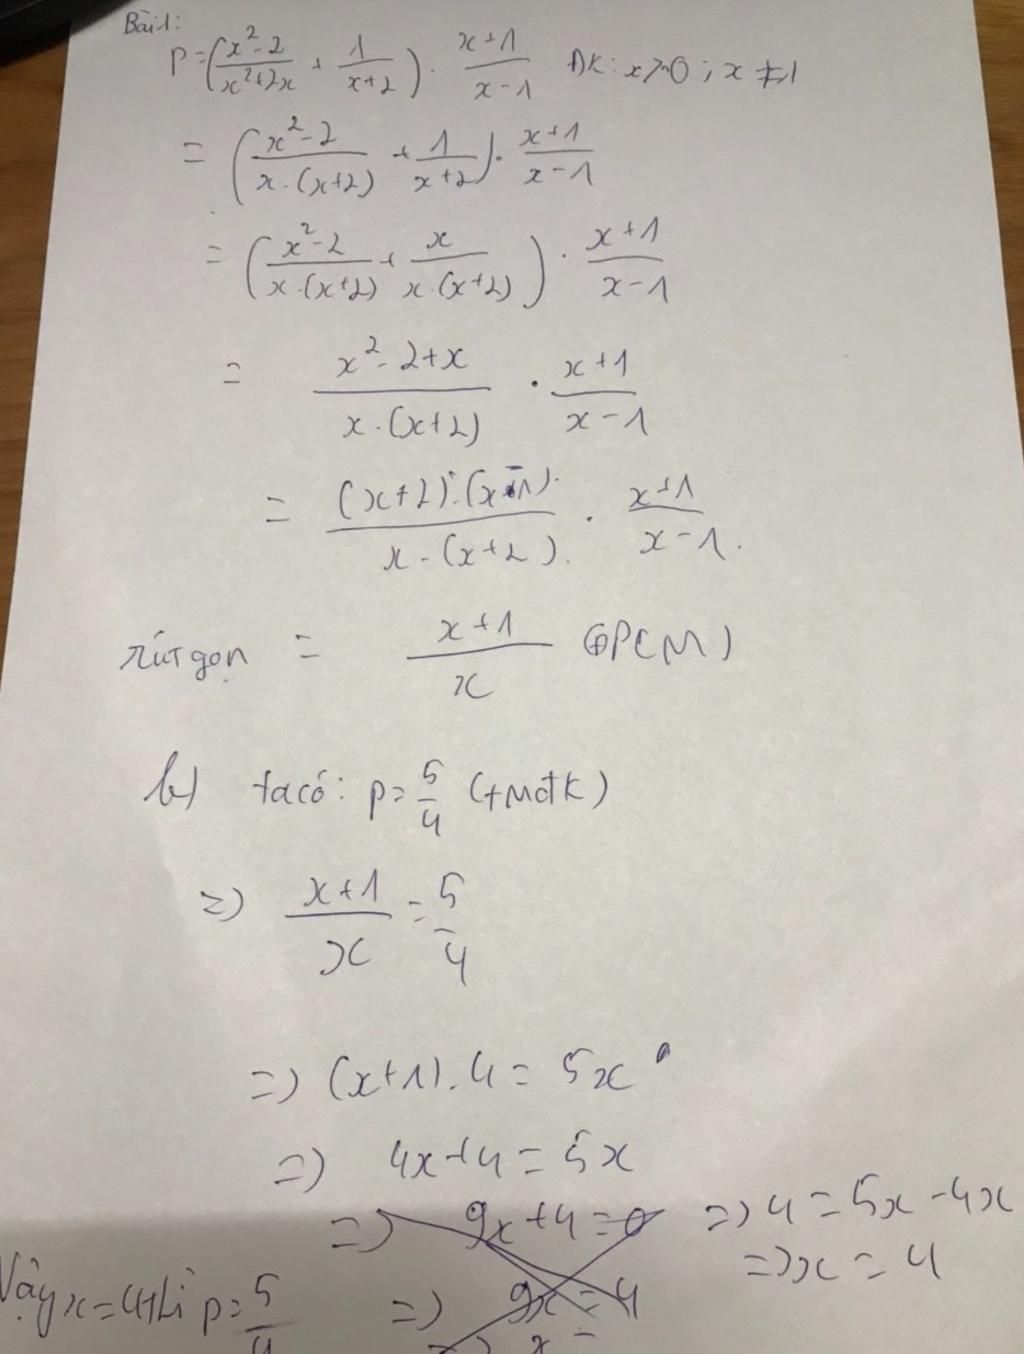 Bài 1:
P=(x²-2/x²+2x + 1/x+2) . x+1/x-1 ĐK: x>0; x≠1
= (x²-2/x.(x+2) + 1/x+2) . x+1/x-1
= (x²-2/x.(x+2) + x/x.(x+2)) . x+1/x-1
= x²-2+x/x.(x+2) . x+1/x-1
= (x+2).(x-1)/x.(x+2) . x+1/x-1
rút gọn = x+1/x (ĐPCM)
b) ta có: P=5/4 (tmđk)
=> x+1/x = 5/4
=> (x+1).4 = 5x
=> 4x+4=5x
=> 9x+4=0 => 4=5x-4x
=> 9x=4 => x=4
=> x=
Vậy x=4 thì P=5/4